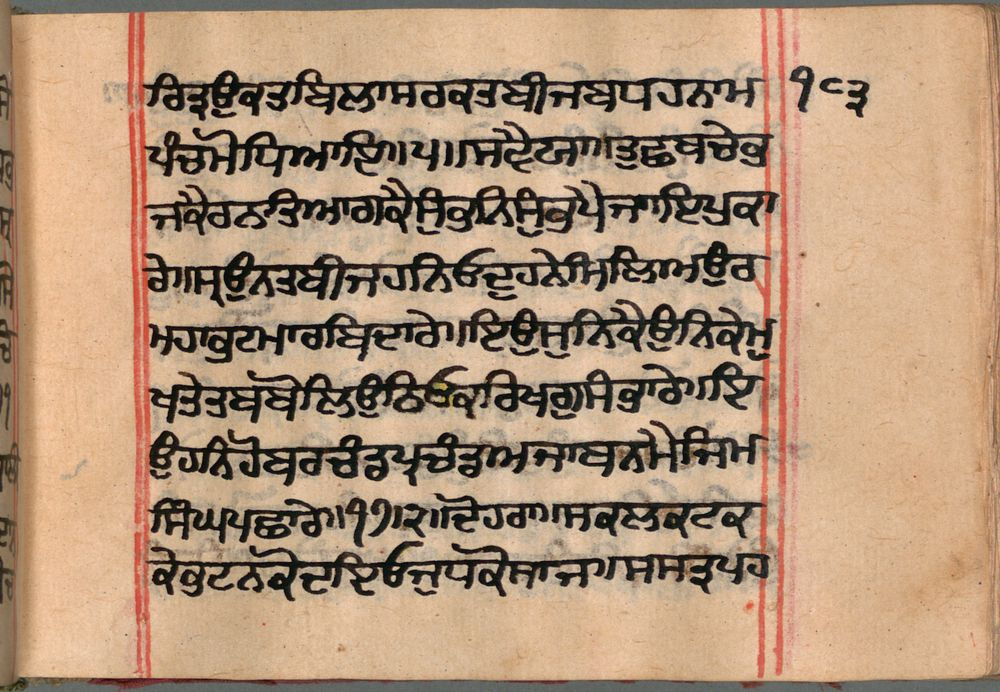 ਰਿਤ੍ਰਉਕਤਬਿਲਾਸਰਕਤਬੀਜਬਧਹਨਾਮ ੧੮੩
ਪੰਚਮੋਧਿਆਇ॥੫॥ਸ੍ਵੈਯਾ॥ਤੁਛਬਚੇਭੁ
ਜਕੈਰਨਤਿਆਗਕੈਸੁੰਭਨਿਸੁੰਭਪੈਜਾਇਪੁਕਾ
ਰੇ॥ਸ੍ਰਉਨਤਬੀਜਹਨਿਓਦੁਹਨੇਮਿਲਿਅਉਰ
ਮਹਾਭਟਮਾਰਬਿਦਾਰੇ॥ਇਉਸੁਨਿਕੈਉਨਿਕੇਮੁ
ਖਤੇਤਬਬੋਲਿਉਠਿਓਕਰਿਖਗੁਸੰਭਾਰੇ॥ਇ
ਉਹਨਿਹੋਬਰਚੰਡਪ੍ਰਚੰਡਅਜਾਬਨਮੈਜਿਮ
ਸਿੰਘਪਛਾਰੇ॥੧੭੨॥ਦੋਹਰਾ॥ਸਕਲਕਟਕ
ਕੇਭਟਨਕੋਦਇਓਜੁਧਕੋਸਾਜ॥ਸਸਤ੍ਰਪਹ